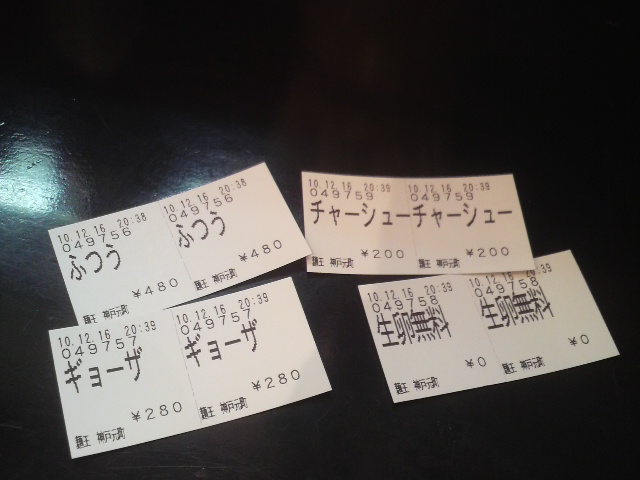 10.12.16 20:38
049756
ふつう
¥480
麺王 神戸元町
10.12.16 20:38
049756
ふつう
¥480
10.12.16 20:39
049759
チャーシュー
¥200
麺王 神戸元町
10.12.16 20:39
049759
チャーシュー
¥200
麺王 神戸元町
10.12.16 20:39
049757
ギョーザ
¥280
麺王 神戸元町
10.12.16 20:39
049757
ギョーザ
¥280
麺王 神戸元町
10.12.16 20:39
049758
¥0
麺王 神戸元町
10.12.16 20:39
049758
¥0
麺王 神戸元町